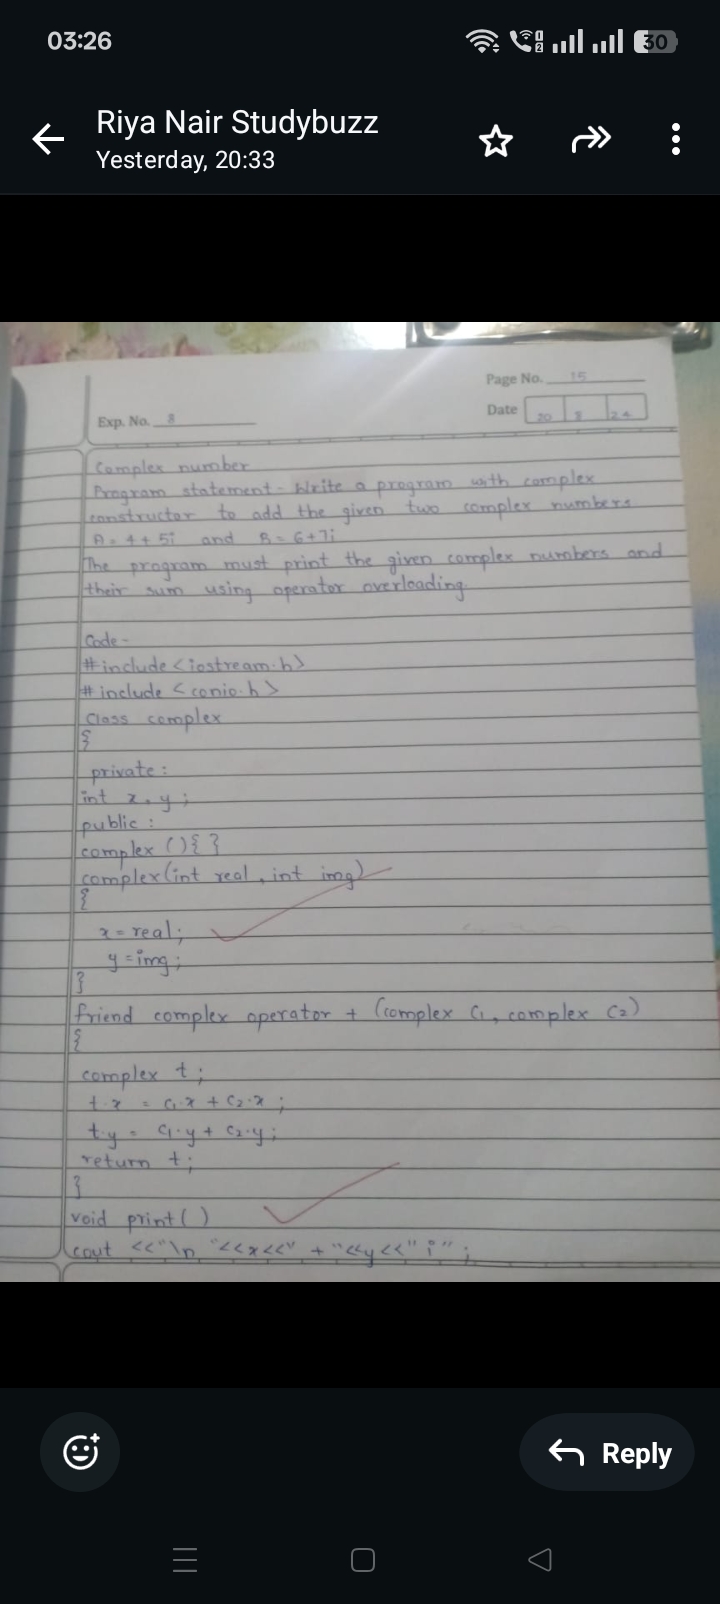 03:26
30
Riya Nair Studybuzz
Yesterday, 20:33
Page No. 15
Exp. No. 8
Date 20 8 24
Complex number
Program statement - Write a program with complex
constructor to add the given two complex numbers
A = 4 + 5i and B = 6 + 7i
The program must print the given complex numbers and
their sum using operator overloading.
Code -
#include <iostream.h>
# include <conio.h>
Class complex
{
private :
int x, y ;
public :
complex () { }
complex (int real, int img)
{
x = real ;
y = img ;
}
friend complex operator + (complex C1, complex C2)
{
complex t ;
t.x = C1.x + C2.x ;
t.y = C1.y + C2.y ;
return t ;
}
void print ( )
cout <<"\n "<<x<<" + "<<y<<" i" ;
Reply